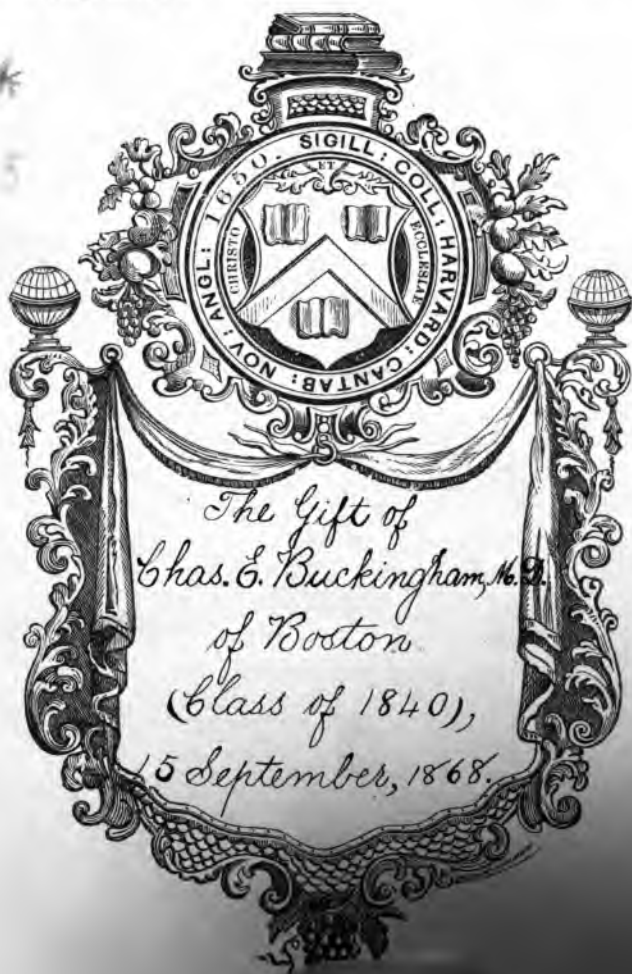 SIGILL: COLL: HARVARD: CANTAB: NOV: ANGL: 1650.
ET
CHRISTO
ECCLESIAE
The Gift of
Chas. E. Buckingham, M.D.
of Boston
(Class of 1840),
15 September, 1868.